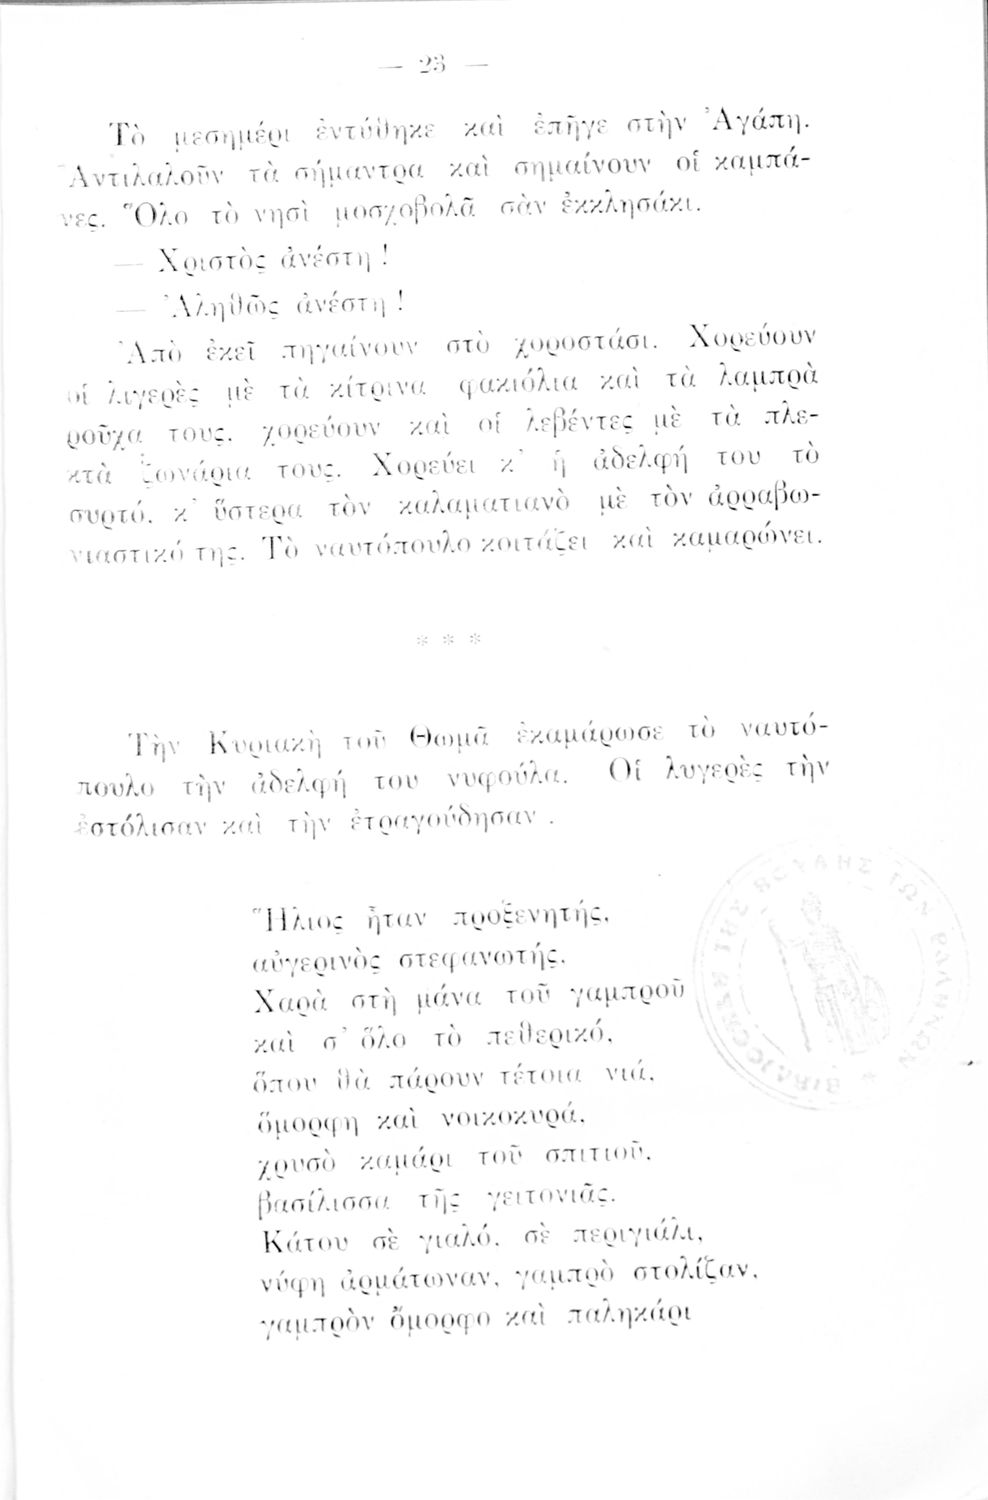 — 23 —
Τὸ μεσημέρι ἐντύθηκε καὶ ἐπῆγε στὴν Ἀγάπη.
Ἀντιλαλοῦν τὰ σήμαντρα καὶ σημαίνουν οἱ καμπά-
νες. Ὅλο τὸ νησὶ μοσχοβολᾶ σὰν ἐκκλησάκι.
— Χριστὸς ἀνέστη !
— Ἀληθῶς ἀνέστη !
Ἀπὸ ἐκεῖ πηγαίνουν στὸ χοροστάσι. Χορεύουν
οἱ λιγερὲς μὲ τὰ κίτρινα φακιόλια καὶ τὰ λαμπρὰ
ροῦχα τους, χορεύουν καὶ οἱ λεβέντες μὲ τὰ πλε-
κτὰ ζωνάρια τους. Χορεύει κ᾿ ἡ ἀδελφή του τὸ
συρτό, κ᾿ ὕστερα τὸν καλαματιανὸ μὲ τὸν ἀρραβω-
νιαστικό της. Τὸ ναυτόπουλο κοιτάζει καὶ καμαρώνει.
* * *
Τὴν Κυριακὴ τοῦ Θωμᾶ ἐκαμάρωσε τὸ ναυτό-
πουλο τὴν ἀδελφή του νυφούλα. Οἱ λυγερὲς τὴν
ἐστόλισαν καὶ τὴν ἐτραγούδησαν .
Ἥλιος ἦταν προξενητής,
αὐγερινὸς στεφανωτής.
Χαρὰ στὴ μάνα τοῦ γαμπροῦ
καὶ σ᾿ ὅλο τὸ πεθερικό,
ὅπου θὰ πάρουν τέτοια νιά,
ὄμορφη καὶ νοικοκυρά,
χρυσὸ καμάρι τοῦ σπιτιοῦ,
βασίλισσα τῆς γειτονιᾶς.
Κάτου σὲ γιαλό, σὲ περιγιάλι,
νύφη ἀρμάτωναν, γαμπρὸ στολίζαν,
γαμπρὸν ὄμορφο καὶ παληκάρι
ΒΙΒΛΙΟΘΗΚΗ ΤΗΣ ΒΟΥΛΗΣ ΤΩΝ ΕΛΛΗΝΩΝ